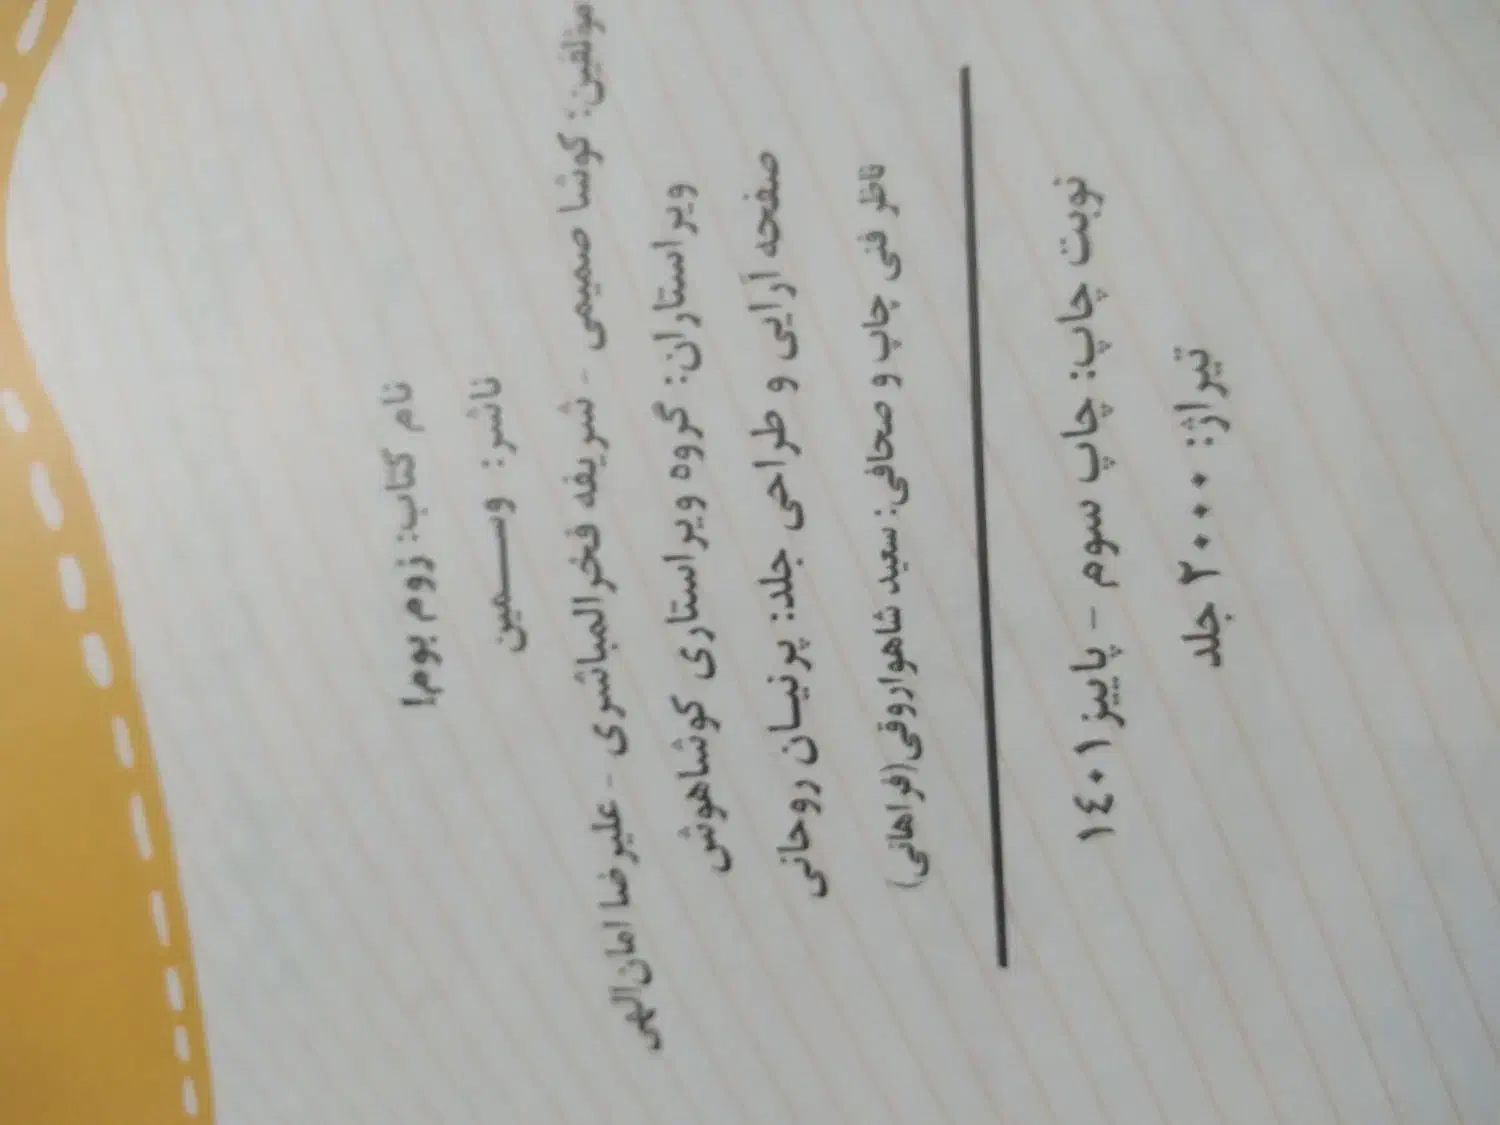 نام کتاب: زوم بوم!
ناشر: وسمین
مؤلفین: کوشا صمیمی - شریفه فخرالمباشری - علیرضا امان‌الهی
ویراستاران: گروه ویراستاری کوشاهوش
صفحه آرایی و طراحی جلد: پرنیان روحانی
ناظر فنی چاپ و صحافی: سعید شاهواروقی (فراهانی)
نوبت چاپ: چاپ سوم - پاییز ۱۴۰۱
تیراژ: ۲۰۰۰ جلد